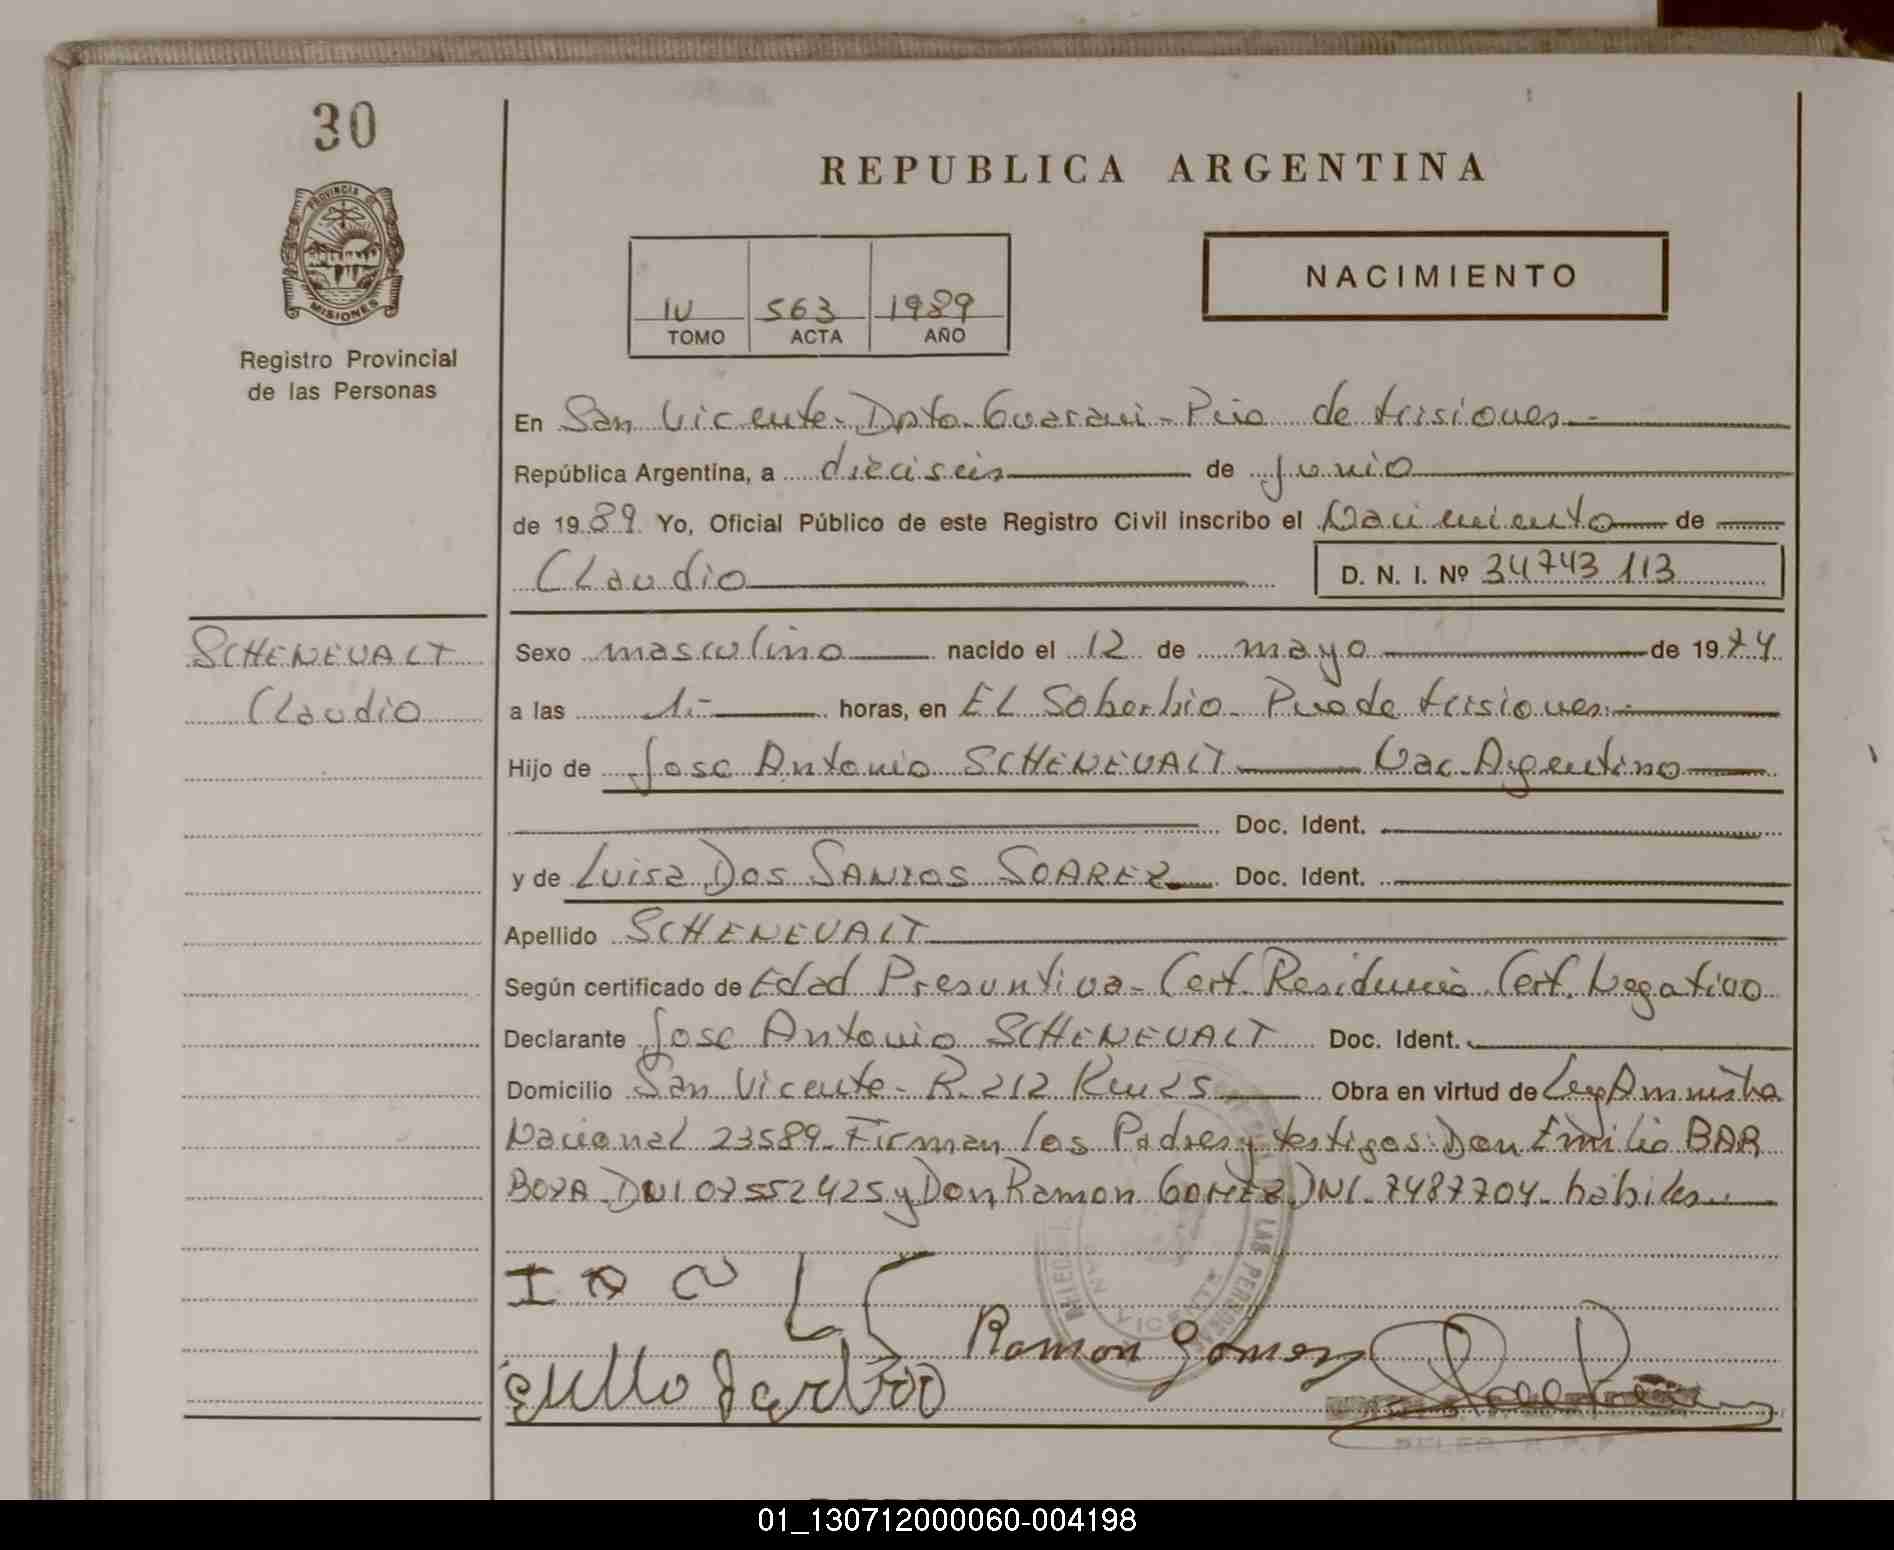 30
REPUBLICA ARGENTINA
PROVINCIA DE
MISIONES
Registro Provincial
de las Personas
NACIMIENTO
IV 563 1989
TOMO ACTA AÑO
En San Vicente - Dpto. Guarani - Pcia de Misiones.-
República Argentina, a dieciseis de junio
de 1989 Yo, Oficial Público de este Registro Civil inscribo el Nacimiento de
Claudio D. N. I. Nº 34743 113
SCHENEVALT
Claudio
Sexo masculino nacido el 12 de mayo de 1974
a las 1.- horas, en EL Soberbio - Pcia de Misiones.-
Hijo de Jose Antonio SCHENEVALT Nac. Argentino
Doc. Ident.
y de Luisa Dos SANTOS SOAREZ Doc. Ident.
Apellido SCHENEVALT
Según certificado de Edad Presuntiva - Cert. Residencia. Cert. Negativo
Declarante Jose Antonio SCHENEVALT Doc. Ident.
Domicilio San Vicente - R. 212 Km 25 Obra en virtud de Ley Amnistia
Nacional 23589. Firman los Padres y testigos: Don Emilio BAR
BOZA DNI 07552425 y Don Ramon GOMEZ DNI. 7487704. habiles.-
Ramon Gomez
VICENTE
LAS PERSONAS
01_130712000060-004198